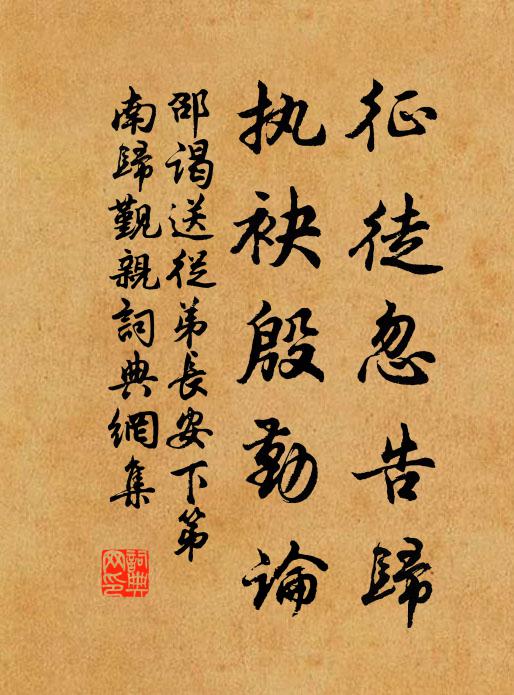 征徒忽告歸
执袂殷勤論
邵谒送從弟長安下第
南歸觐親詞典網集
詞典网印